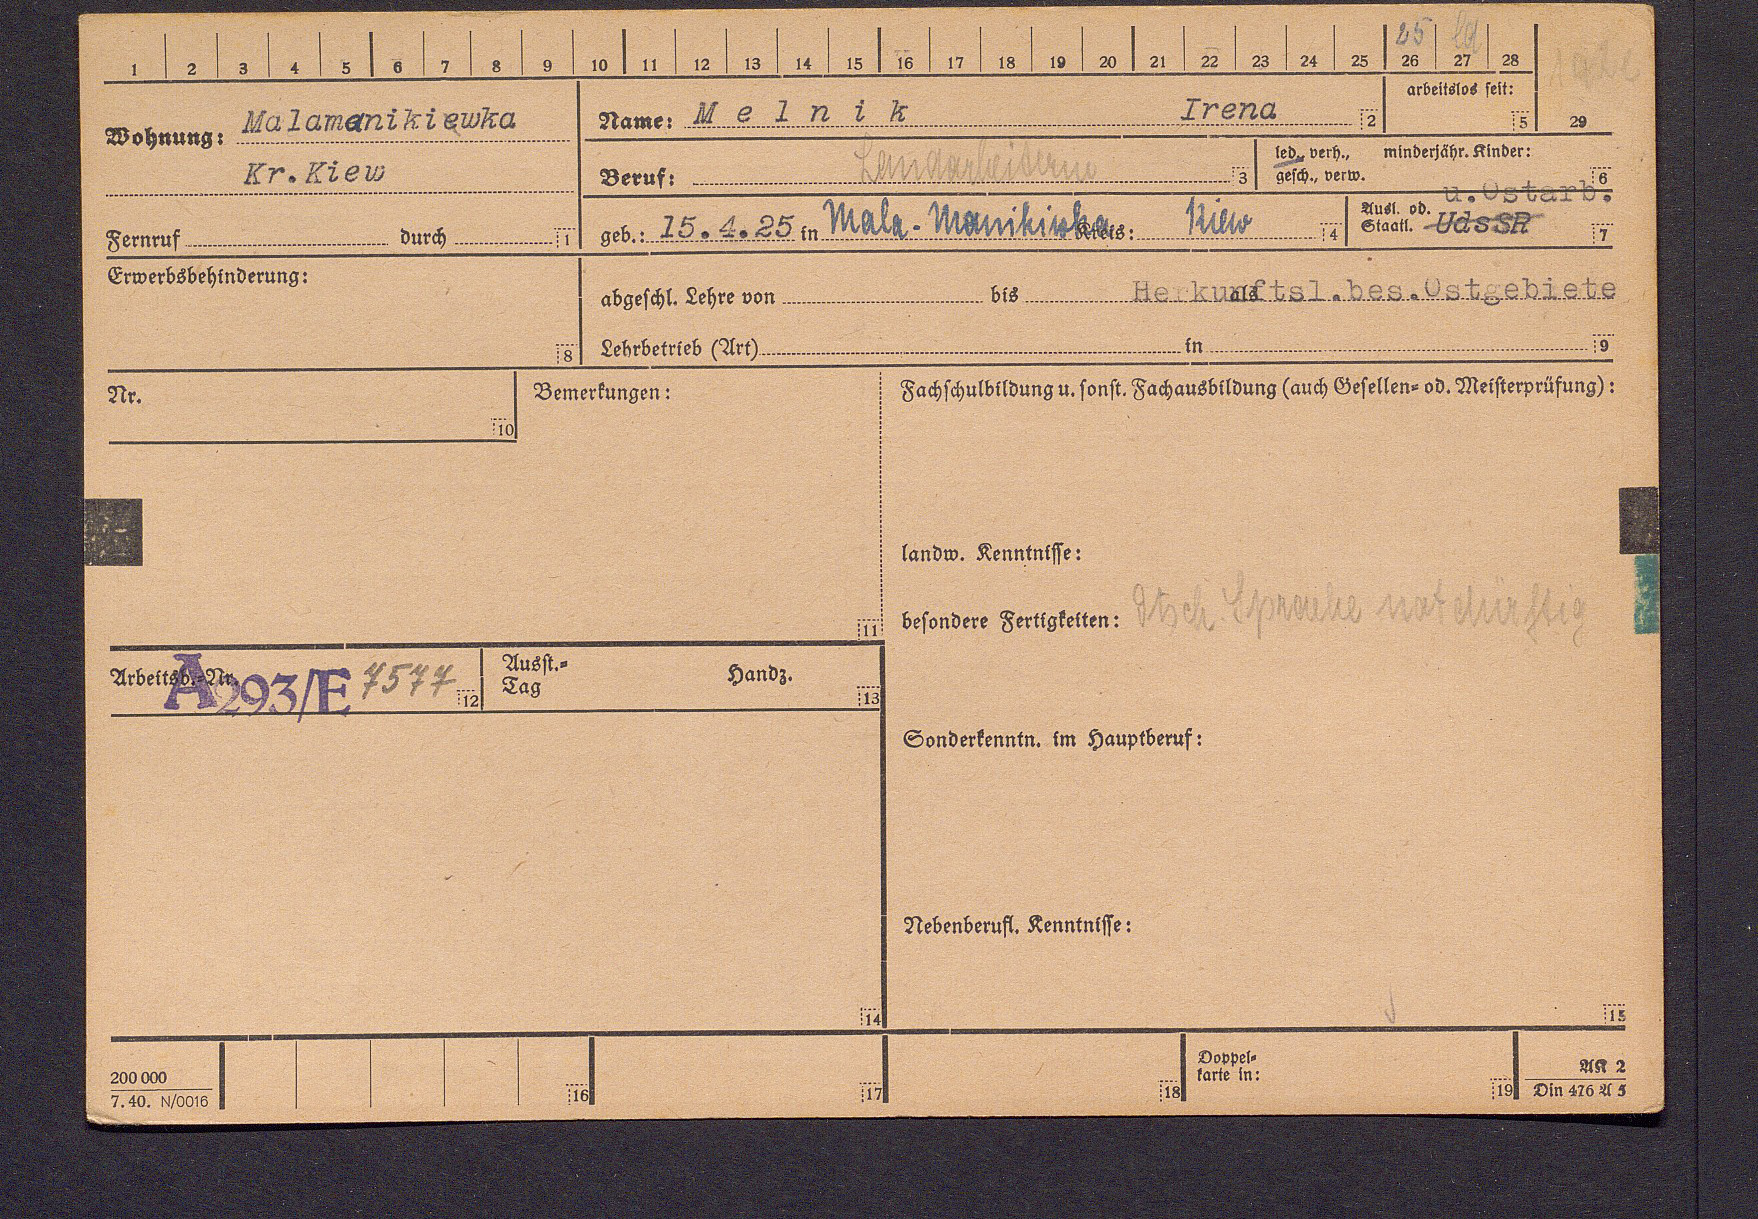 1 2 3 4 5 6 7 8 9 10 11 12 13 14 15 16 17 18 19 20 21 22 23 24 25 26 27 28
25
arbeitslos seit:
5 29
Wohnung: Malamanikiewka
Kr.Kiew
Fernruf durch 1
Name: Melnik Irena 2
Beruf: Landarbeiterin 3
led., verh., minderjähr. Kinder:
gesch., verw. 6
geb.: 15.4.25 in Mala-Manikiwka Kreis: Kiew 4
u.Ostarb.
Ausl. od.
Staatl. UdSSR 7
Erwerbsbehinderung:
8
abgeschl. Lehre von bis als Herkunftsl.bes.Ostgebiete
Lehrbetrieb (Art) in 9
Nr.
10
Bemerkungen:
11
Fachschulbildung u. sonst. Fachausbildung (auch Gesellen- od. Meisterprüfung):
landw. Kenntnisse:
besondere Fertigkeiten: dtsch. Sprache notdürftig
Arbeitsb.-Nr. A293/E 7577 12
Ausst.-
Tag Handz. 13
Sonderkenntn. im Hauptberuf:
Nebenberufl. Kenntnisse:
14 15
200 000
7. 40. N/0016
16 17 18
Doppel-
karte in:
19
AK 2
Din 476 A 5